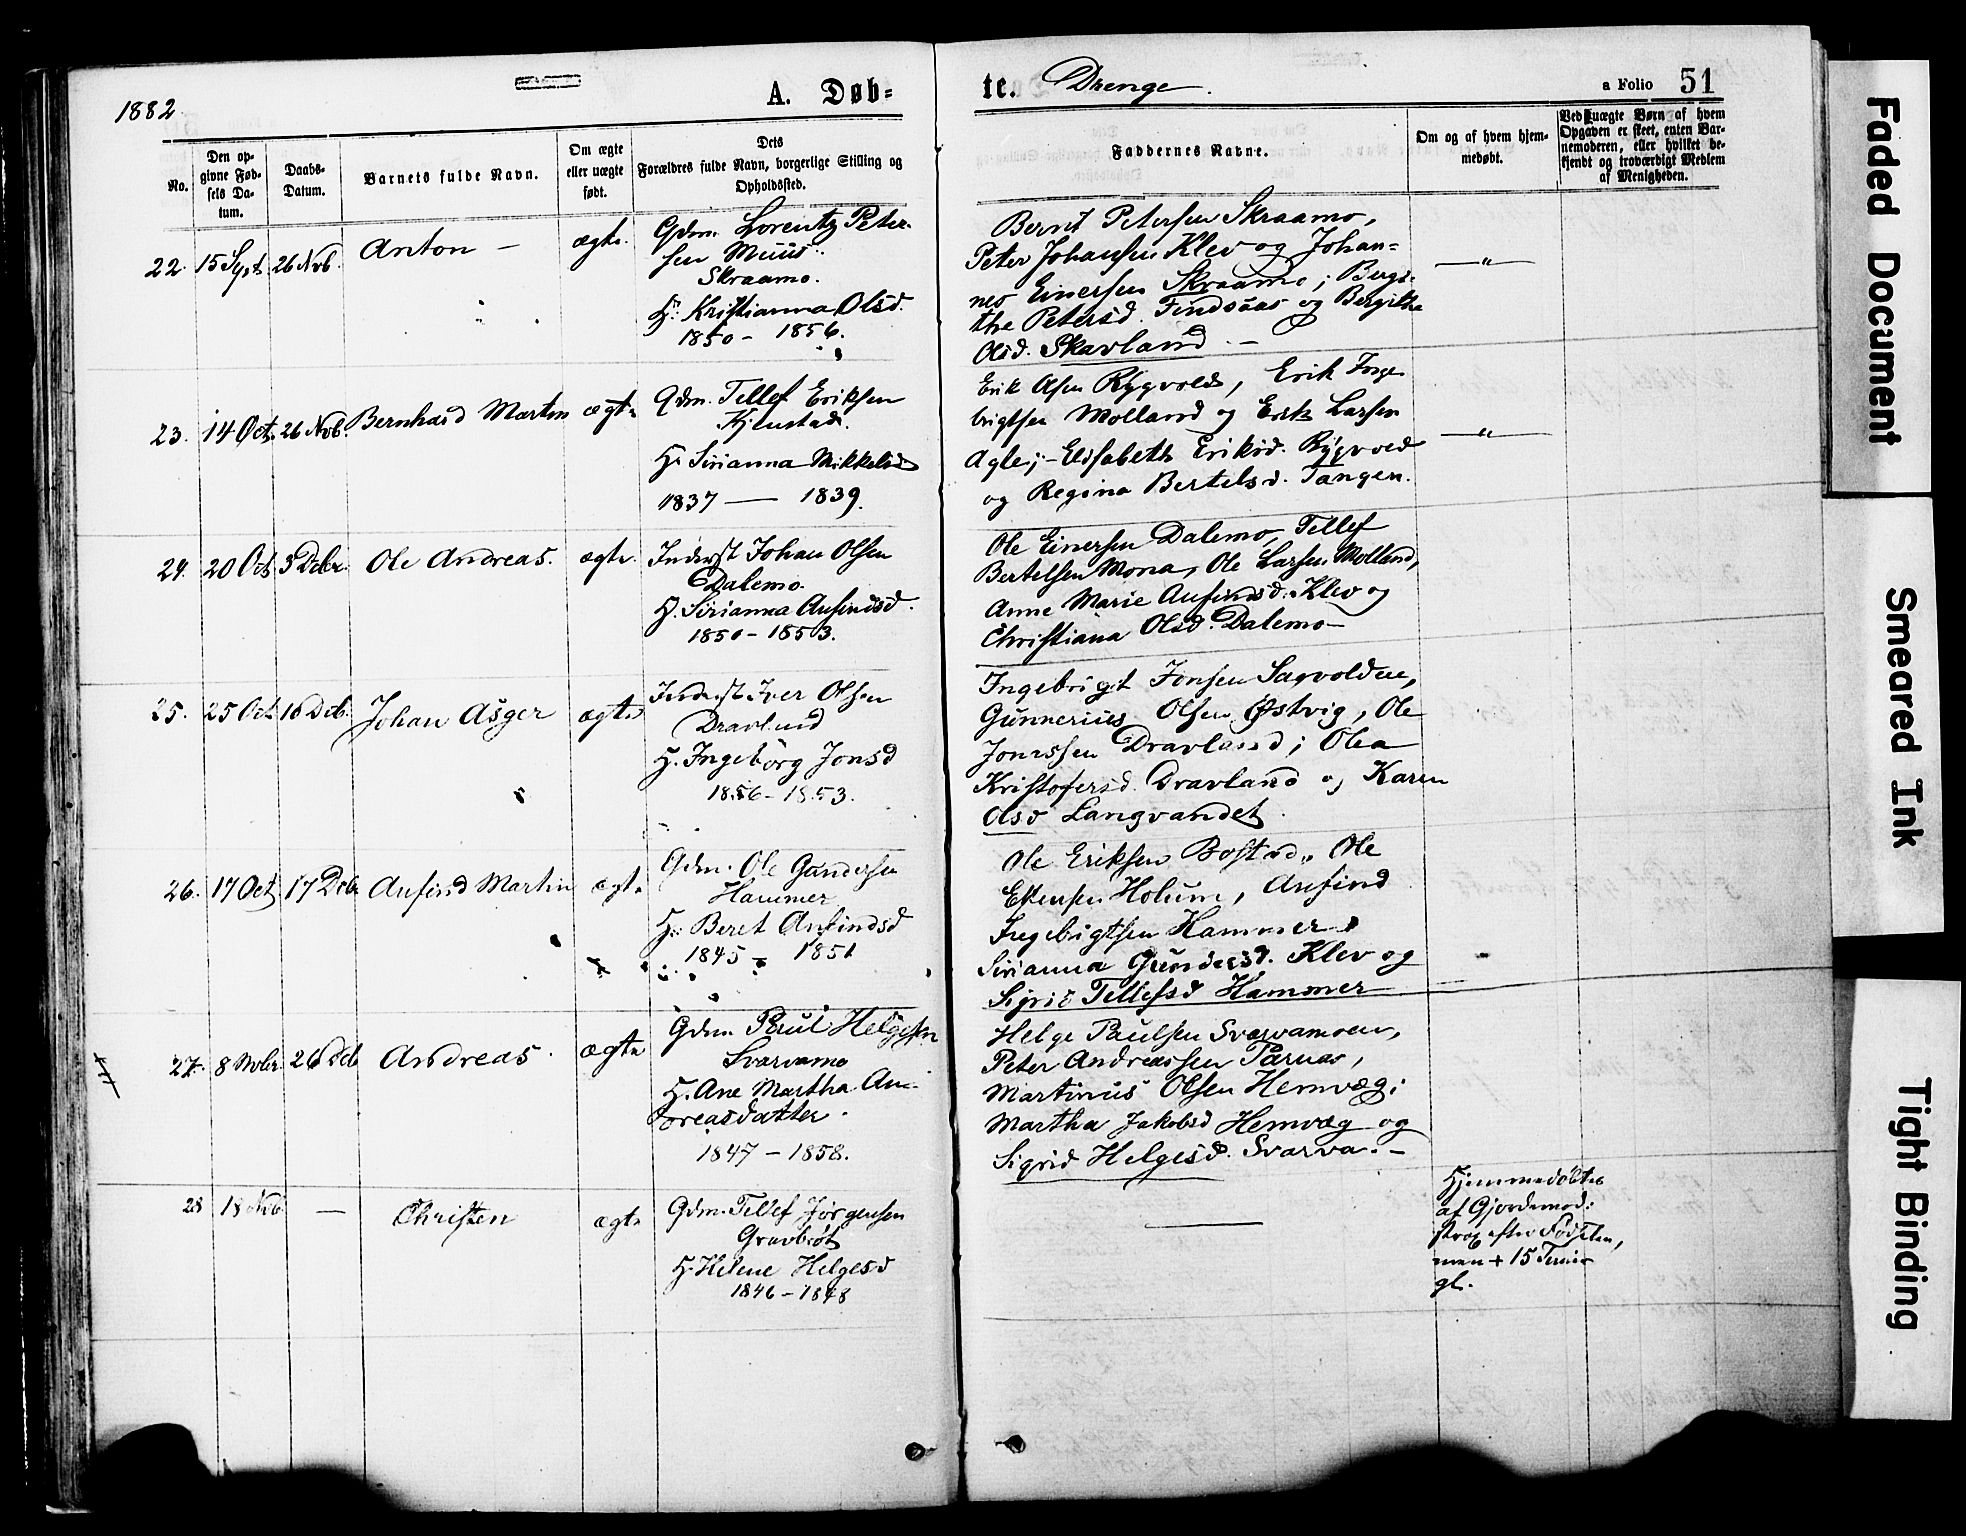 1882
A. Døb-
te. Drenge.
a Folio 51
No.
Den op-
givne Fød-
sels Da-
tum.
Daabs-
Datum.
Barnets fulde Navn.
Om ægte
eller uægte
født.
Dets
Forældres fulde Navn, borgerlige Stilling og
Opholdssted.
Faddernes Navne.
Om og af hvem hjem-
medøbt.
Ved uægte Børn af hvem
Opgaven er skeet, enten Bar-
nemoderen, eller hvilket be-
kjendt og troværdigt Medlem
af Menigheden.
22. 15 Sept. 26 Nvb. Anton – ægte.
Gdm. Lorentz Peter-
sen Muus
Skraamo.
H: Kristianna Olsd.
1850 – 1856.
Bernt Petersen Skraamo,
Peter Johansen Klev og Johan-
nes Einersen Skraamo; Bergi-
the Petersd. Findsaas og Bergithe
Olsd. Skavland. –
— „ —
23. 14 Oct. 26 Nvb. Bernhard Martin ægte
Gdm. Tellef Eriksen
Kjenstad.
H. Sirianna Mikkelsd
1837 — 1839.
Erik Olsen Rygvold, Erik Inge-
brigtsen Molland og Erik Larsen
Agle; – Elisabeth Eriksd. Rygvold
og Regina Bertelsd. Tangen.
— „ —
24. 20 Oct 3 Debr. Ole Andreas. ægte.
Inderst Johan Olsen
Dalemo.
H. Sirianna Anfindsd.
1850 – 1853.
Ole Einersen Dalemo, Tellef
Bertelsen Mona, Ole Larsen Molland,
Anne Marie Anfindsd. Klev og
Christiana Olsd. Dalemo –
25. 25 Oct 10 Deb. Johan Asger ægte
Inderst Iver Olsen
Dravland
H. Ingeborg Jonsd
1856 – 1853.
Ingebrigt Jonsen Sagvolden,
Gunnerius Olsen Østvig, Ole
Jonassen Dravland; Olea
Kristofersd. Dravland og Karen
Olsd Langvandet.
26. 17 Oct 17 Deb. Anfind Martin ægte
Gdm. Ole Gundersen
Hammer
H: Beret Anfindsd
1845 – 1851
Ole Eriksen Bostad, Ole
Estensen Holum, Anfind
Ingebrigtsen Hammer;
Sirianna Gundersd. Klev og
Sigrid Tellefsd Hammer
27. 8 Nvbr. 26 Deb Andreas. ægte
Gdm. Paul Helgesen
Svarvamo
H. Ane Martha An-
dreasdatter.
1847 – 1858.
Helge Paulsen Svarvamoen,
Peter Andreassen Parnas,
Martinus Olsen Hemvæg;
Martha Jakobsd Hemvæg og
Sigrid Helgesd. Svarva. –
28 18 Nvb — Christen ægte
Gdm. Tellef Jørgensen
Gravbrøt
H. Helene Helgesd
1846 – 1848
—
Hjemmedøbtes
af Gjordemod:
strax efter Fødselen,
men + 15 Timer
gl.
Faded Document
Smeared Ink
Tight Binding